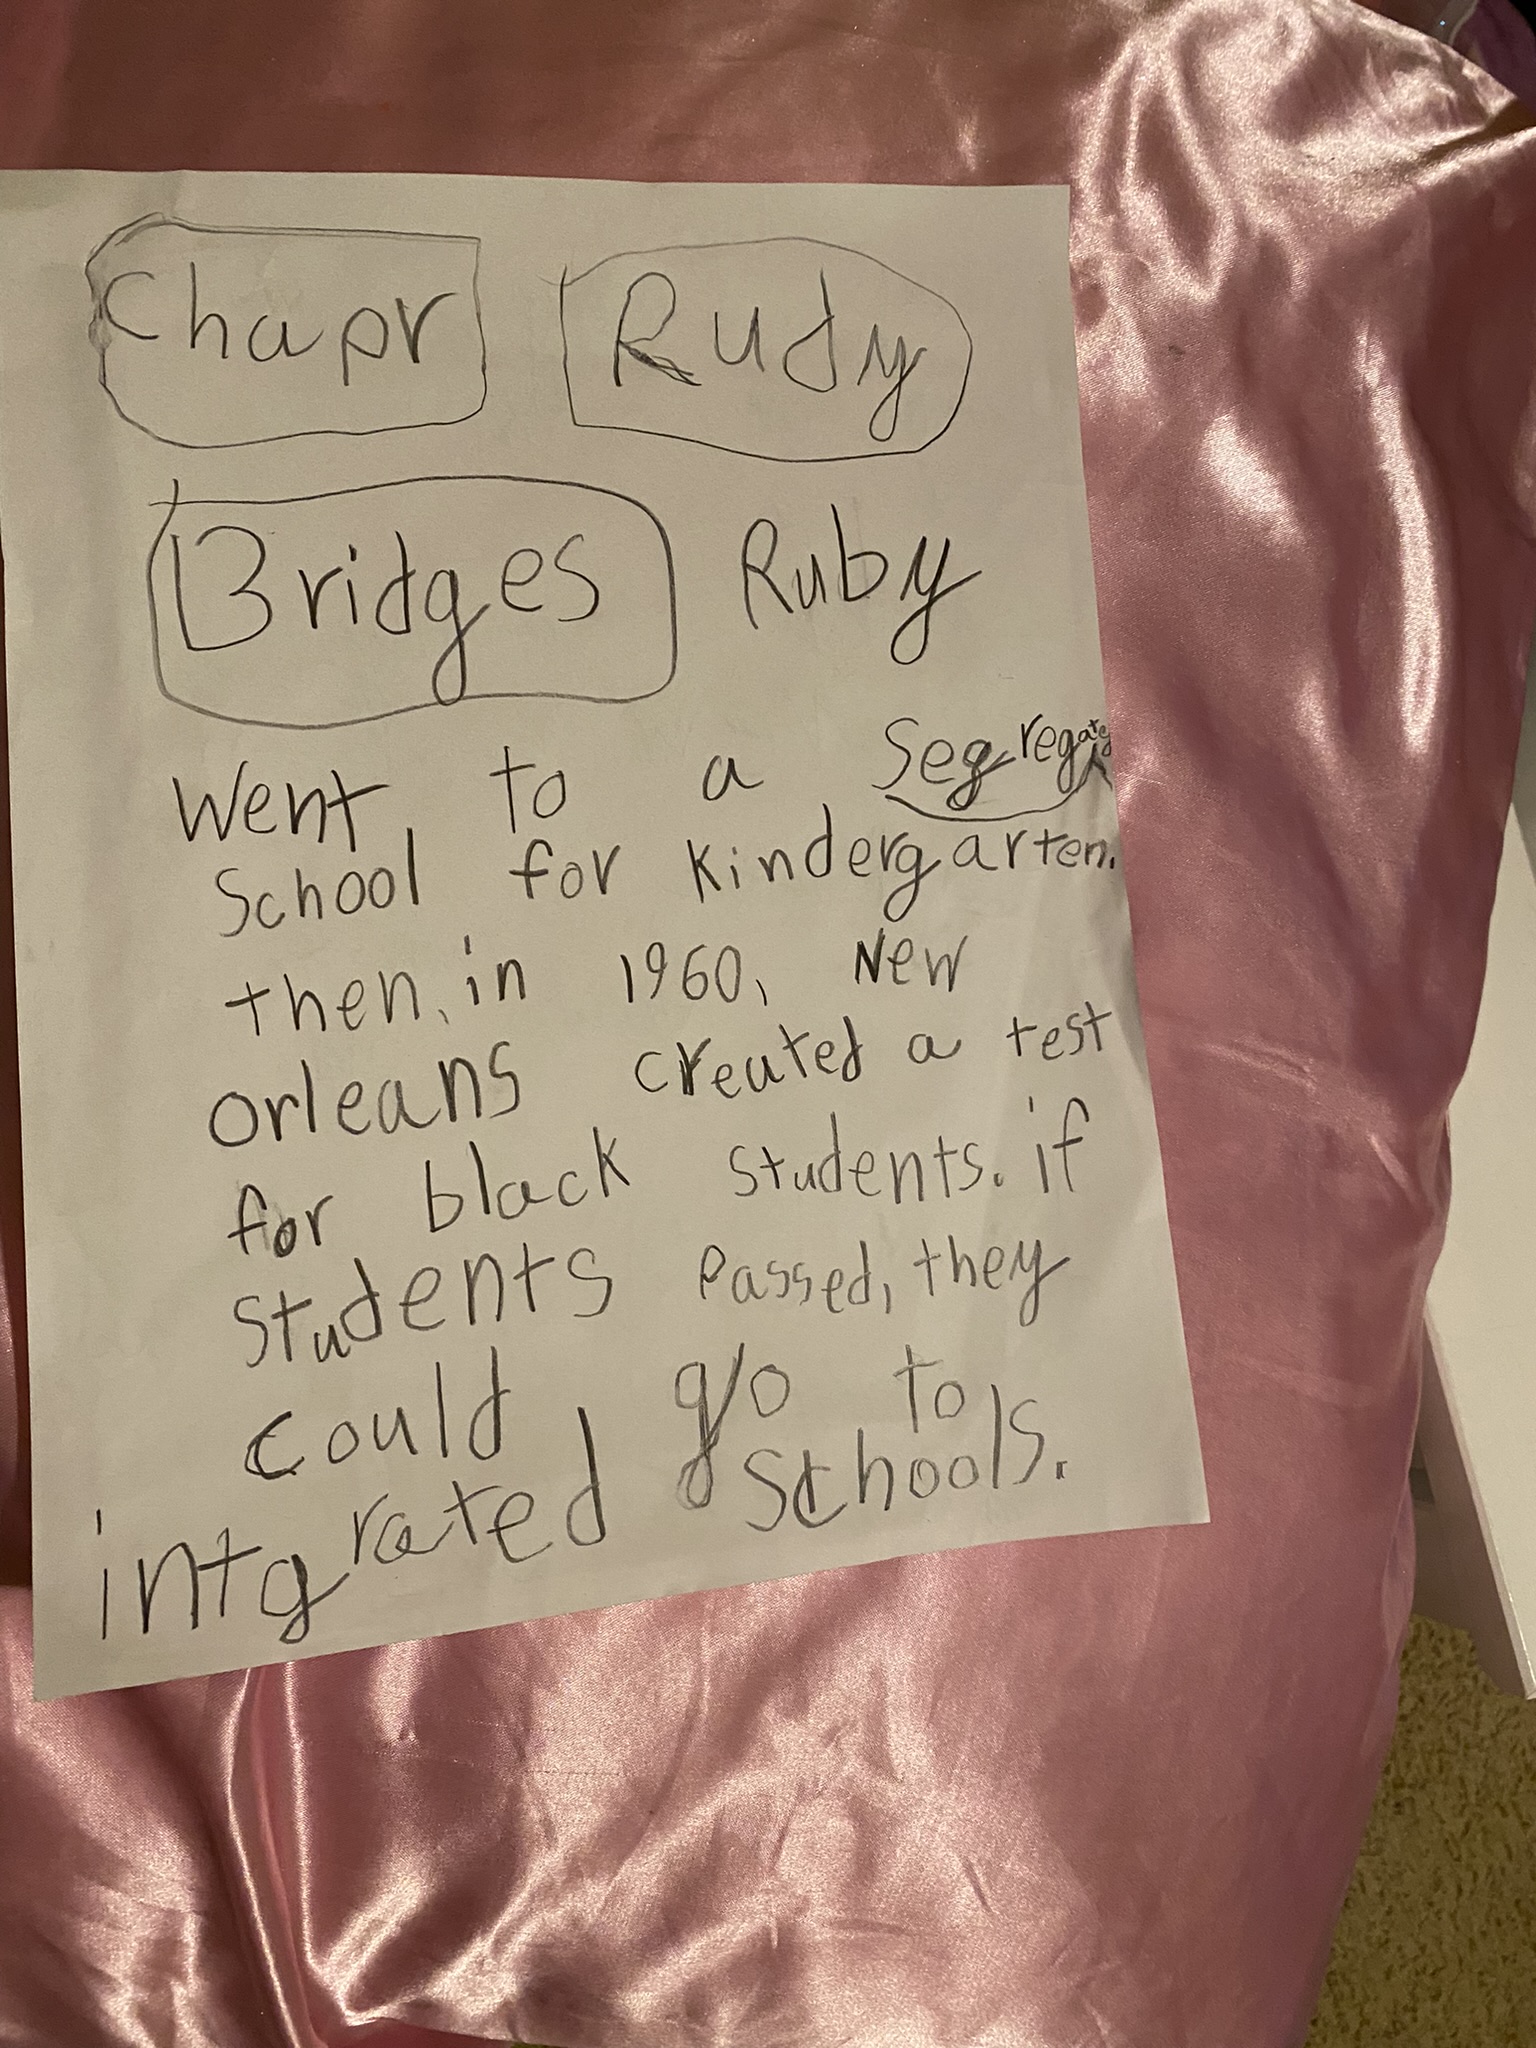 Chapr Rudy
Bridges Ruby
Went to a Segregated
School for Kindergarten.
then, in 1960, New
orleans created a test
for black students. if
students Passed, they
could go to
intgrated Schools.